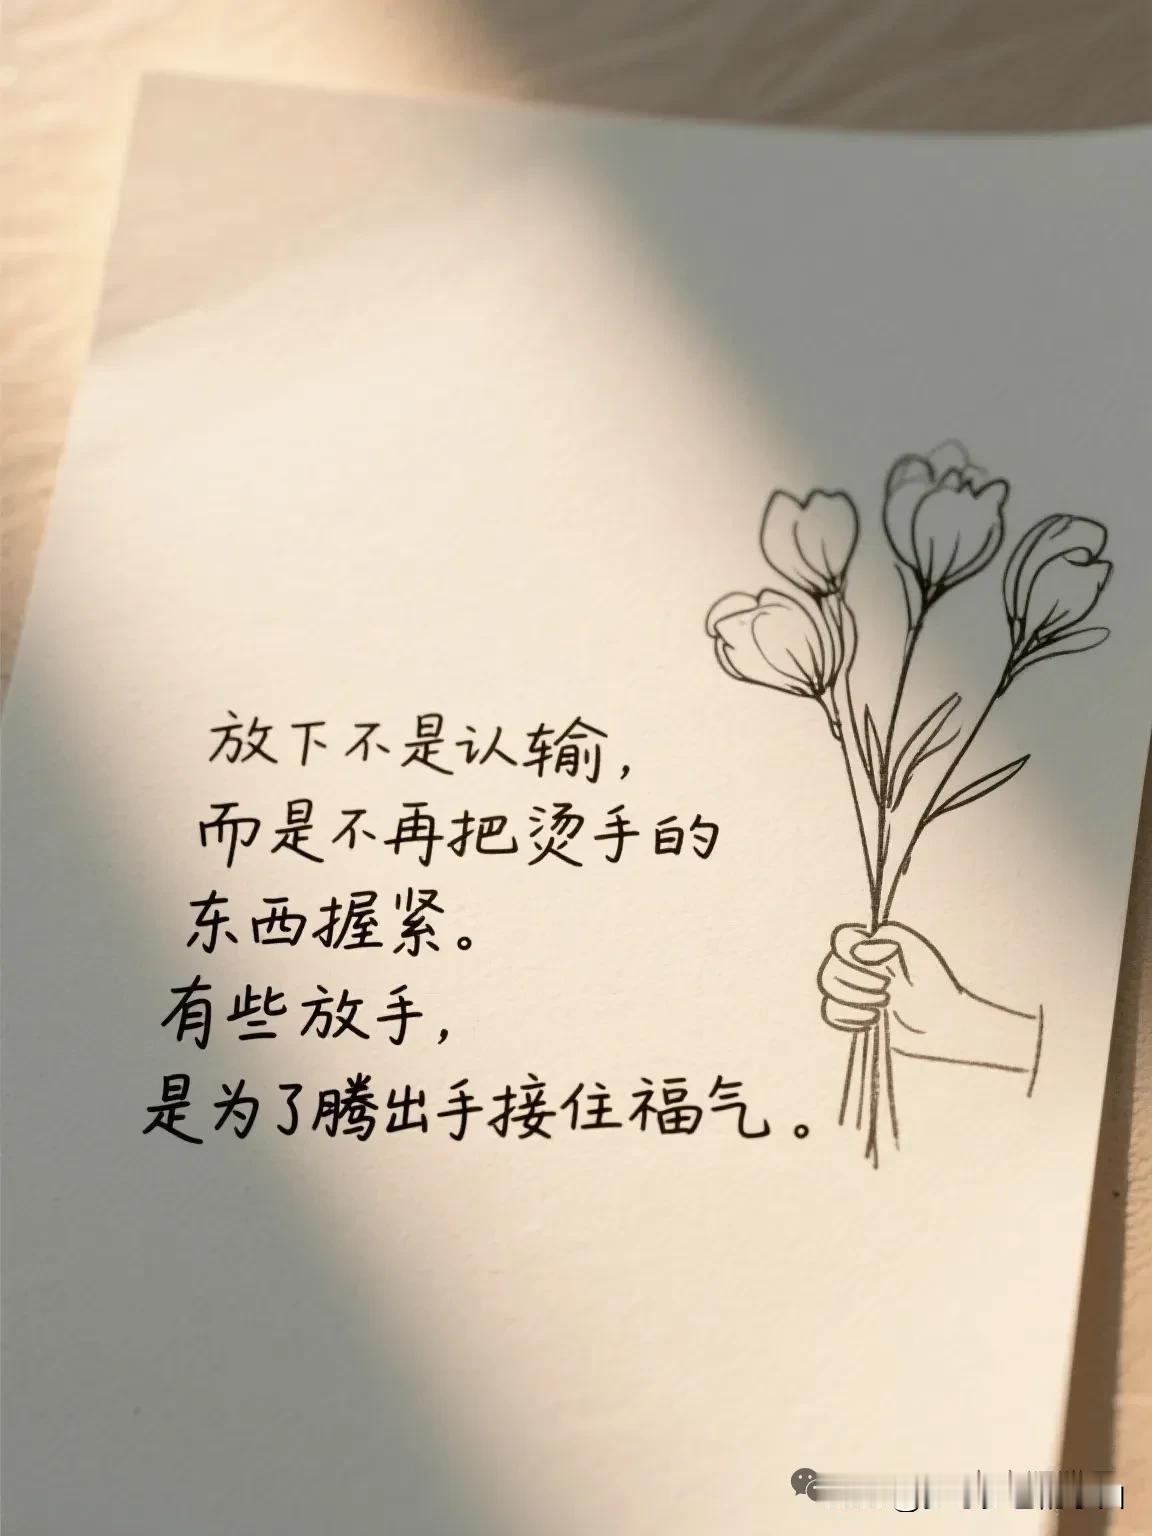 放下不是认输，
而是不再把烫手的
东西握紧。
有些放手，
是为了腾出手接住福气。